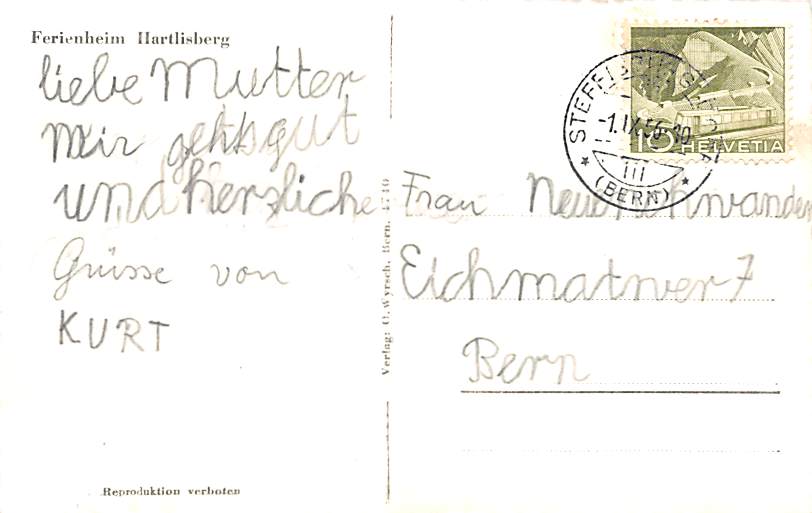 Ferienheim Hartlisberg
liebe Mutter
Mir gehts gut
und herzliche
Grüsse von
KURT
Reproduktion verboten
Verlag: O. Wyrsch, Bern.
STEFFISBURG
-1.IX.56-10
III
(BERN)
10 HELVETIA
Frau
7
Bern